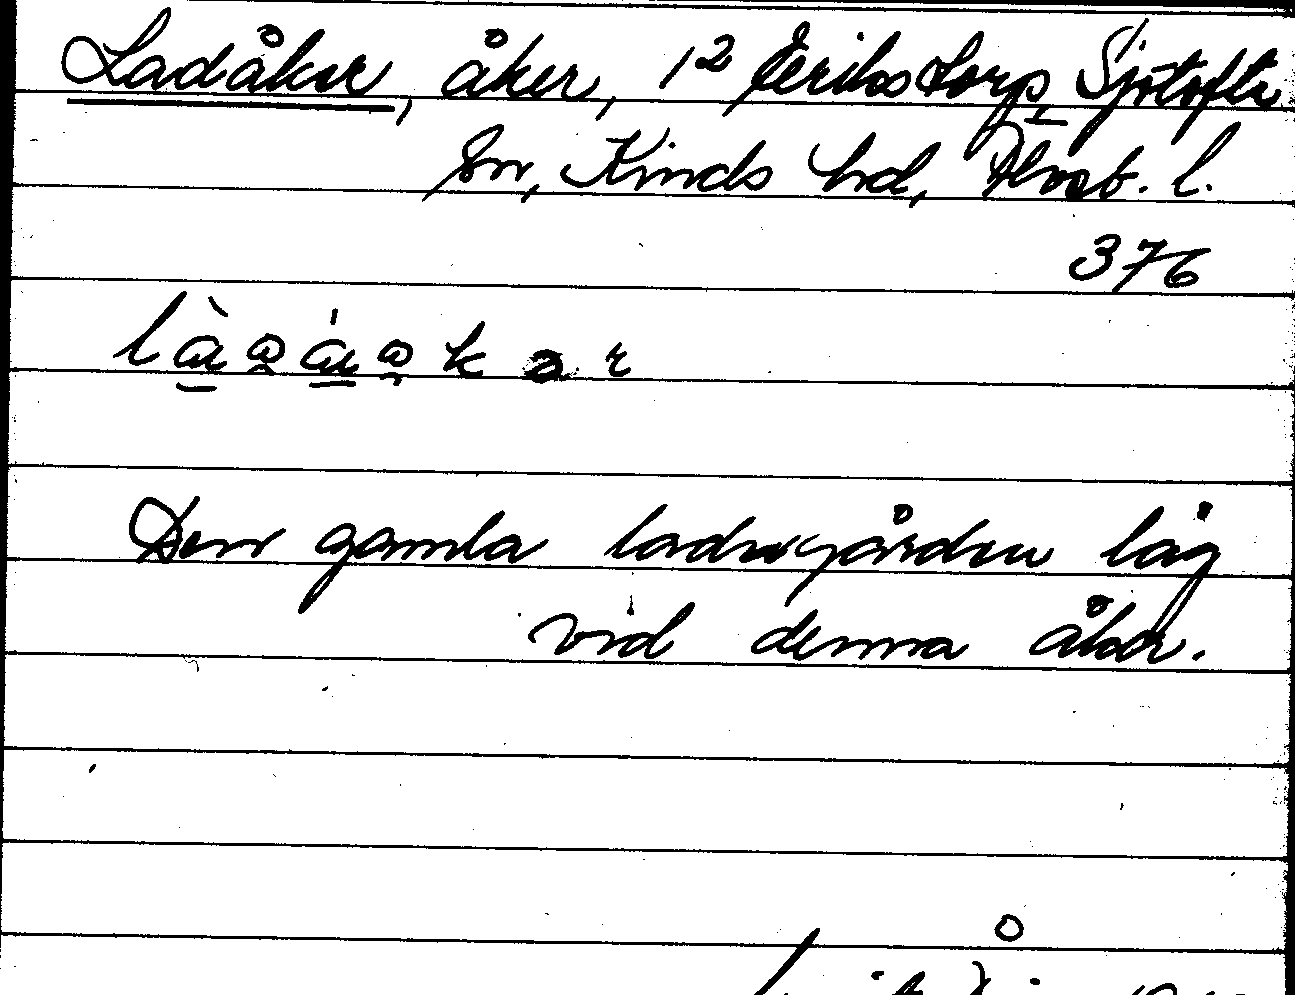 Ladåker, åker, 1² Erikstorp, Sjötofta
sn, Kinds hd, Älvsb. l.
376
Den gamla ladugården låg
vid denna åker.